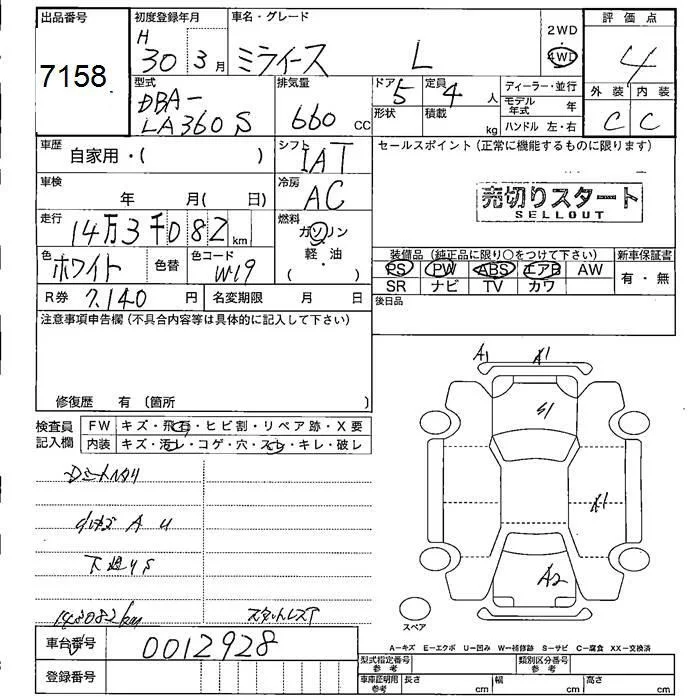 出品番号
7158
初度登録年月
H
30 3月
車名・グレード
ミライース L
2WD
4WD
評価点
4
外装 内装
C C
型式
DBA-
LA360S
排気量
660 CC
ドア 5
形状
定員 4 人
積載 kg
ディーラー・並行
モデル年式 年
ハンドル 左・右
車歴 自家用・( )
シフト IAT
セールスポイント (正常に機能するものに限ります)
売切りスタート
SELLOUT
車検 年 月( 日)
冷房 AC
走行 14万3千082 km
燃料
ガソリン
軽・油
( )
色 ホワイト 色替 色コード W19
装備品 (純正品に限り○をつけて下さい)
PS PW ABS エアB AW
SR ナビ TV カワ
新車保証書
有・無
R券 7,140 円 名変期限 月 日
後日品
注意事項申告欄 (不具合内容等は具体的に記入して下さい)
修復歴 有 〔箇所 〕
検査員記入欄
FW キズ・飛石・ヒビ割・リペア跡・X要
内装 キズ・汚レ・コゲ・穴・スレ・キレ・破レ
A U
143082km
スタットレスT
A1 A1
S1
A1
A2
スペア
A-キズ E-エクボ U-凹み W-補修跡 S-サビ C-腐食 XX-交換済
車台番号 0012928
登録番号
型式指定番号 参考
類別区分番号 参考
車庫証明用 参考 長さ cm 幅 cm 高さ cm